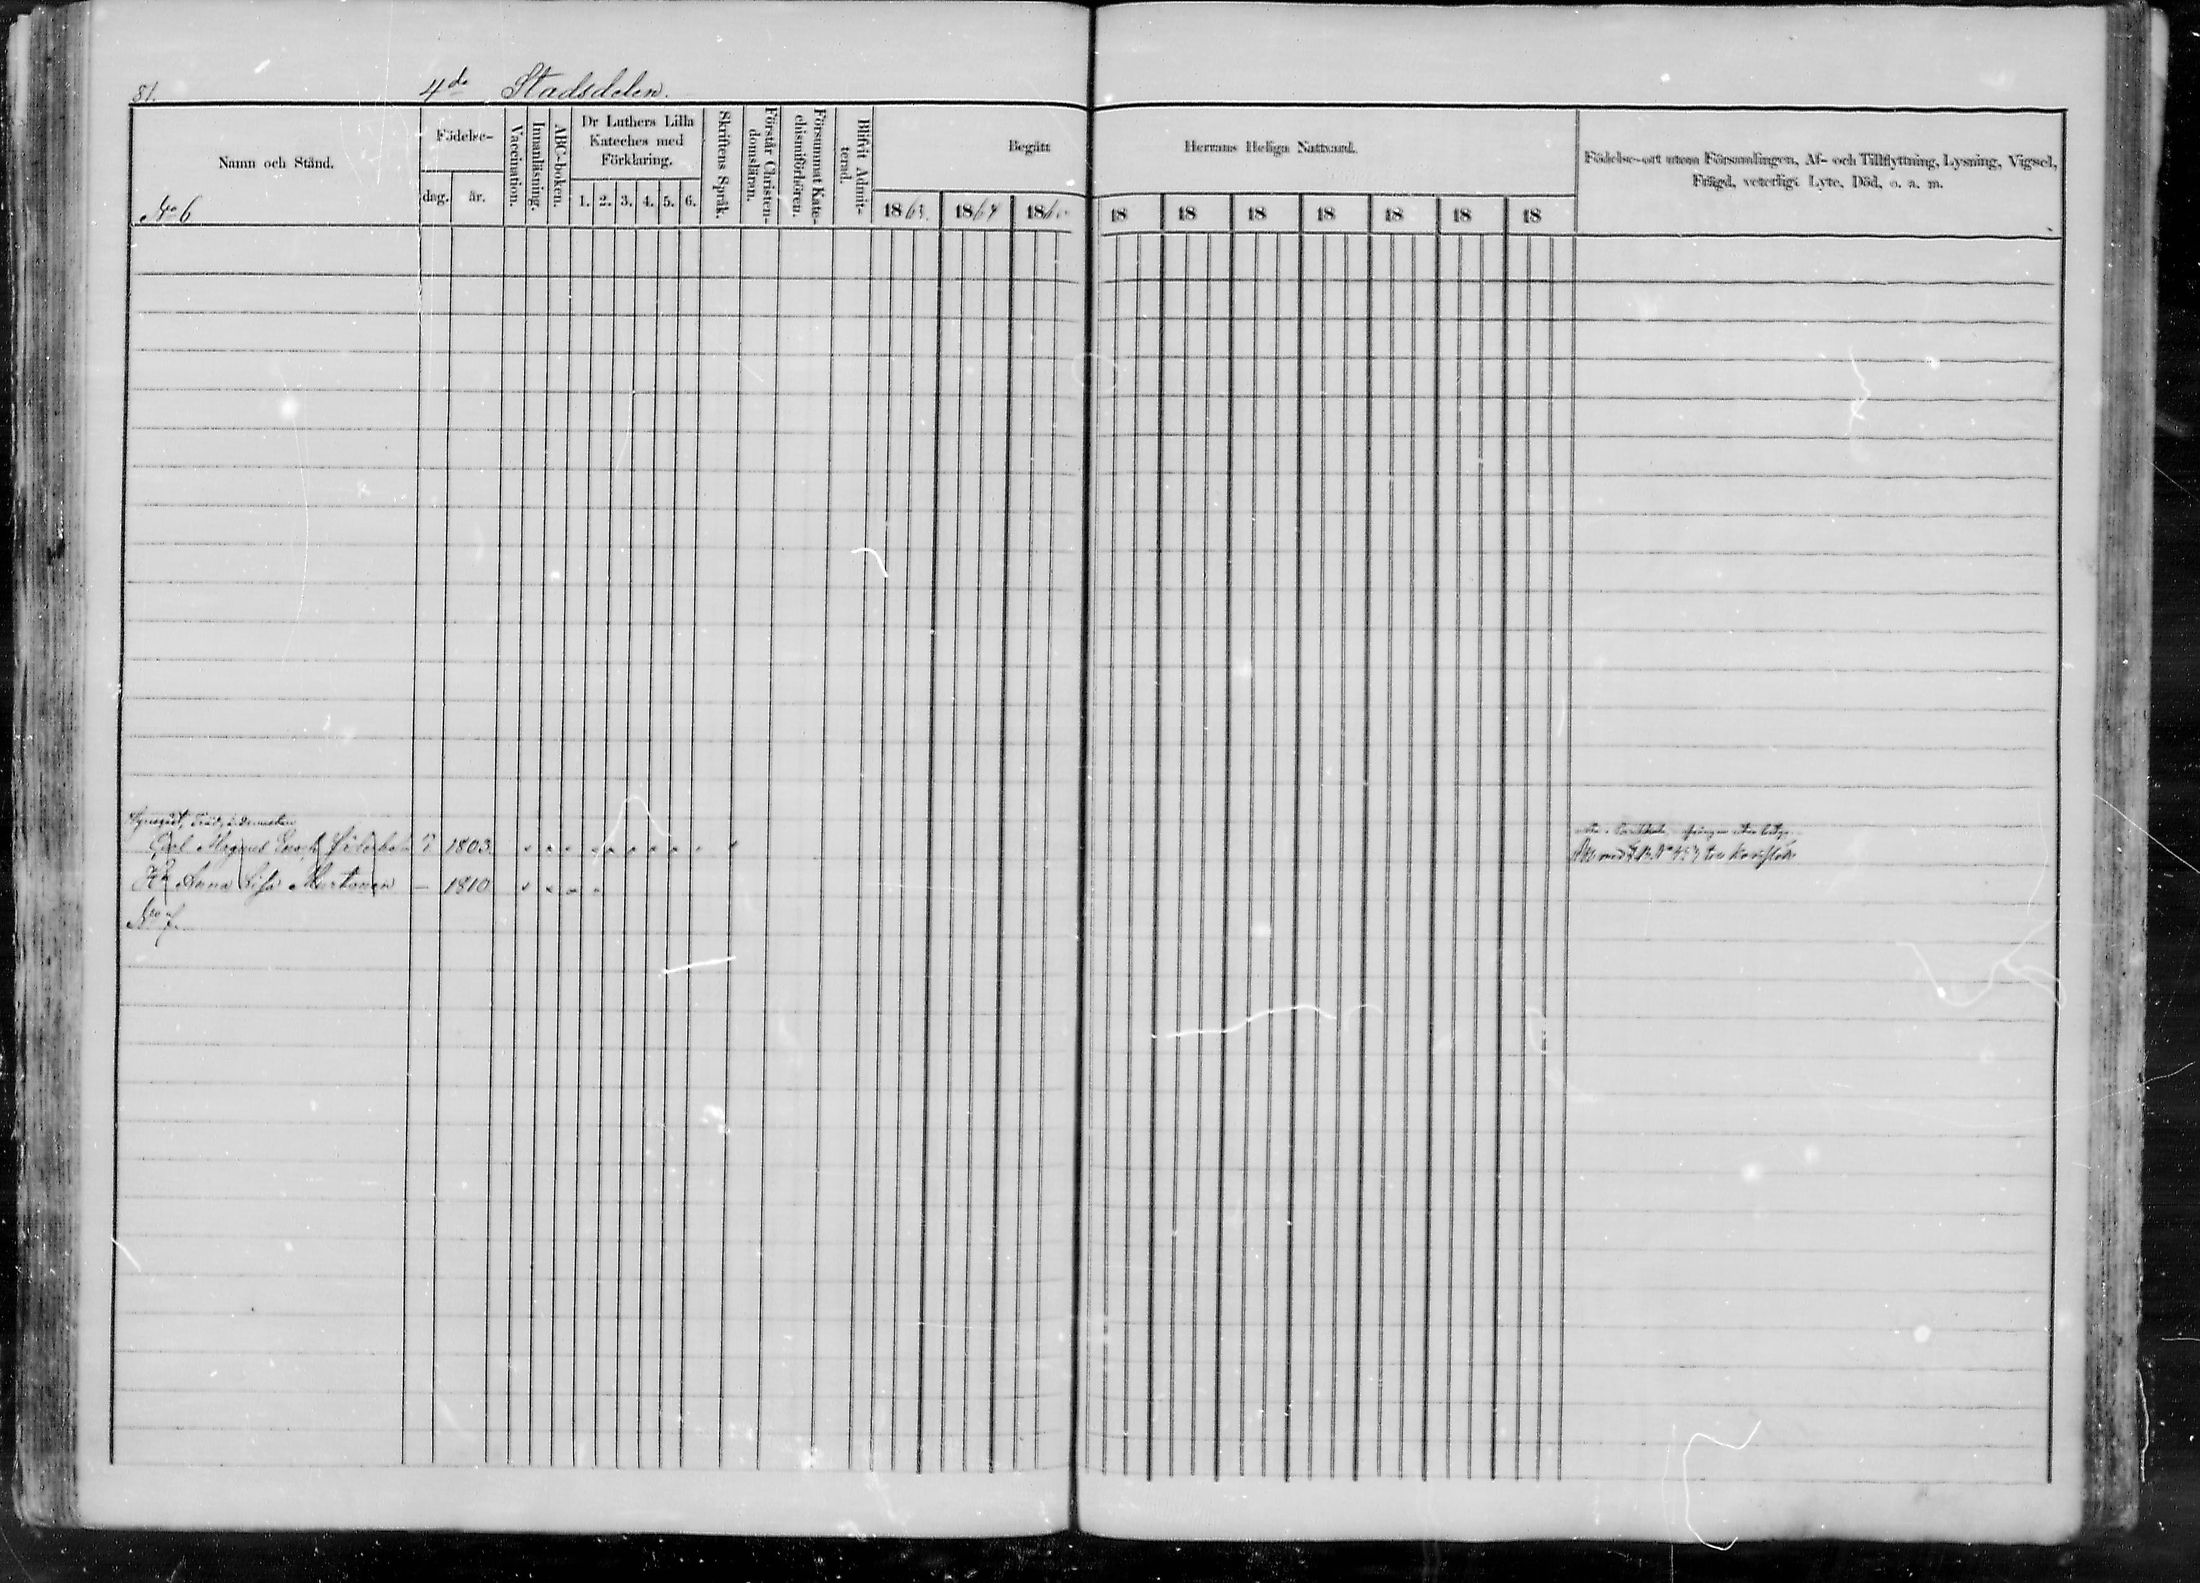 81.
4de Stadsdelen.
Namn och Stånd.
Födelse-
dag. år.
Vaccination.
Innanläsning.
ABC-boken.
Dr Luthers Lilla
Kateches med
Förklaring.
1. 2. 3. 4. 5. 6.
Skriftens Språk.
Förstår Christen-
domsläran.
Försummat Kate-
chismiförhören.
Blifvit Admit-
terad.
Begått Herrans Heliga Nattvard.
1863. 1864 18 18 18 18 18 18 18 18
Födelse-ort utom Församlingen, Af- och Tillflyttning, Lysning, Vigsel,
Frägd, veterligt Lyte, Död, o. a. m.
No 6
Carl Magnus 1803
Hu Anna Lisa Martonen — 1810
No 7.